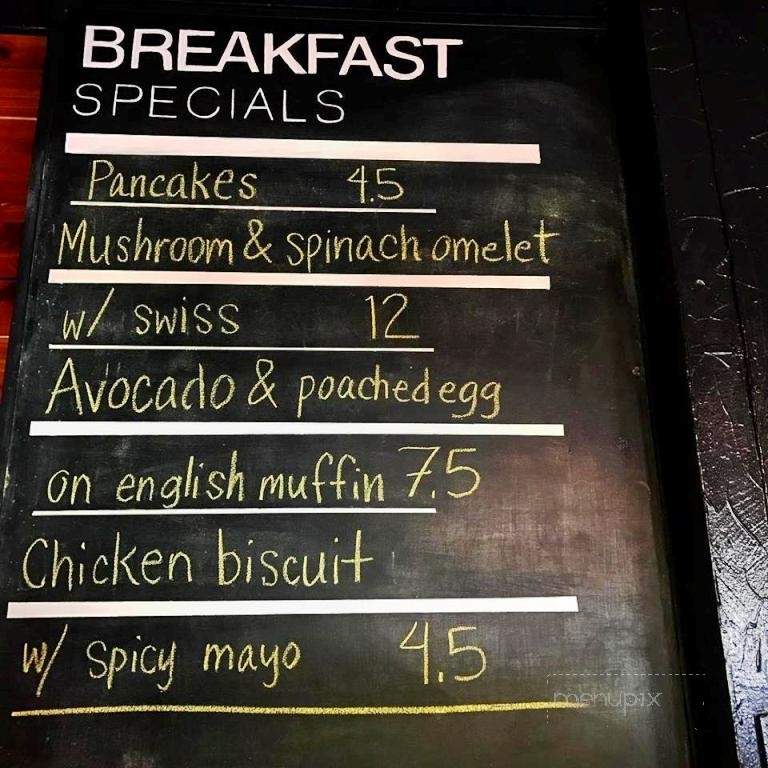 BREAKFAST
SPECIALS
Pancakes 4.5
Mushroom & spinach omelet
w/ swiss 12
Avocado & poached egg
on english muffin 7.5
Chicken biscuit
w/ spicy mayo 4.5
menupix